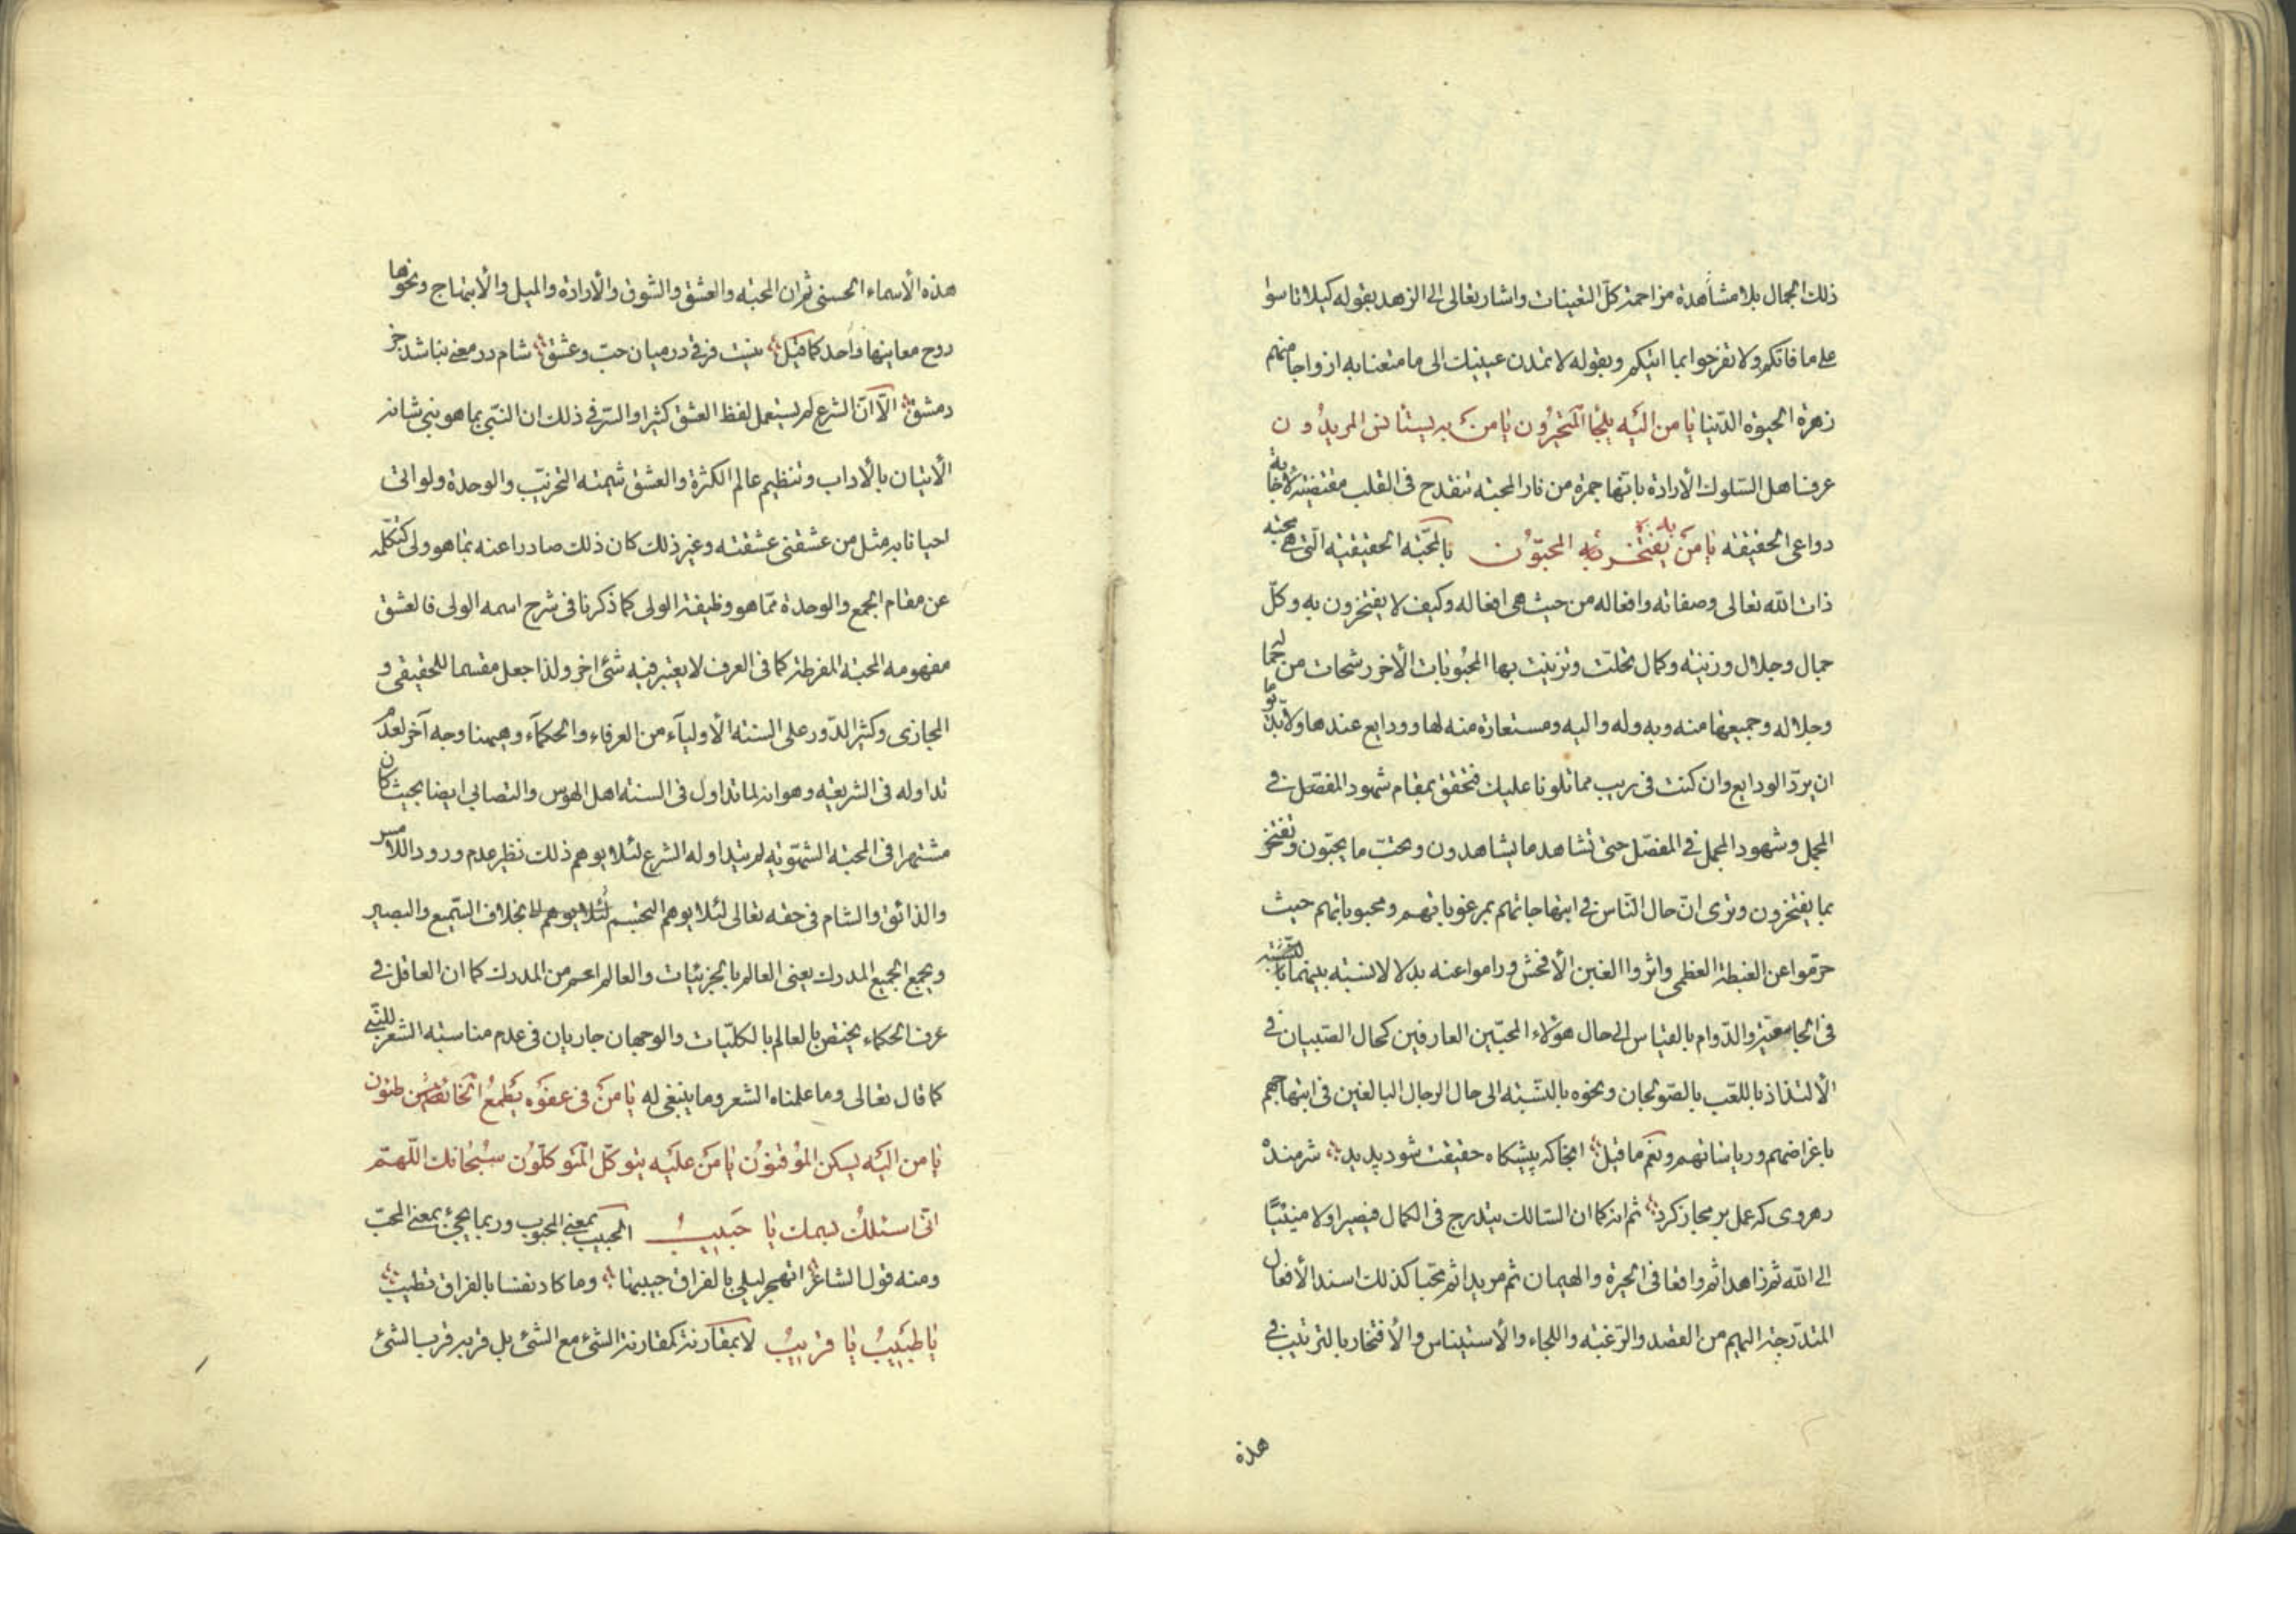 ذلك الجمال بلا مشاهدة مزاحمة كلّ التعينات واشار تعالى الى الزهد بقوله كيلا تاسوا
على ما فاتكم ولا تفرحوا بما اتيكم وبقوله لا تمدن عينيك الى ما متعنا به ازواجا منهم
زهرة الحيوة الدّنيا يا من اليه يلجأ المتحيّرون يا من به يستأنس المريدون
عرف اهل السّلوك الأرادة بانّها جمرة من نار المحبّة تنقدح فى القلب مقتضية لاجابة
دواعى الحقيقة يا من به يفتخر المحبّون بالمحبّة الحقيقية الّتى هى محبّة
ذات الله تعالى وصفاته وافعاله من حيث هى افعاله وكيف لا يفتخرون به وكلّ
جمال وجلال وزينة وكمال تحلّت وتزينت بها المحبوبات الأخر رشحات من جماله
وجلاله وجميعها منه وبه وله واليه ومستعارة منه لها وودايع عندها ولابدّ يوما
ان يردّ الودايع وان كنت فى ريب مما تلونا عليك فتحقق بمقام شهود المفصّل فى
المجمل وشهود المجمل فى المفصّل حتى تشاهد ما يشاهدون وتحبّ ما يحبّون وتفتخر
بما يفتخرون وترى انّ حال النّاس فى ابتهاجاتهم بمرغوباتهم ومحبوباتهم حيث
حرّموا عن الغبطة العظمى واثروا الغبن الأفحش وراموا عنه بدلا لا نسبة بينهما
فى الجامعيّة والدّوام بالقياس الى حال هؤلاء المحبّين العارفين كحال الصّبيان فى
الألتذاذ باللعب بالصّولجان ونحوه بالنّسبة الى حال الرجال البالغين فى ابتهاجهم
باغراضهم ورياساتهم ونعم ما قيل انجا كه پيشكاه حقيقت شود پديد شرمنده
رهروى كه عمل بر مجاز كرد ثم انه كما ان السّالك يتدرج فى الكمال فيصير اولا منيبًا
الى الله ثم زاهدا ثم واقعا فى الحيرة والهيمان ثم مريدا ثم محبّا كذلك اسند الأفعال
المتدّرجة اليهم من القصد والرّغبة واللجاء والأستيناس والأفتخار بالترتيب فى
هذه
هذه الأسماء الحسنى ثم ان المحبّة والعشق والشوق والأرادة والميل والأبتهاج ونحوها
روح معاينها واحد كما قيل نيست فرقى درميان حبّ وعشق شام در معنى نباشد جز
دمشق الّا انّ الشرع لم يستعمل لفظ العشق كثيرا والسّر فى ذلك ان النّبى بما هو نبى شانه
الأتيان بالأداب وتنظيم عالم الكثرة والعشق شيمته التخريب والوحدة ولو اتى
احيانا به مثل من عشقنى عشقته وغير ذلك كان ذلك صادرا عنه بما هو ولى كتكلّمه
عن مقام الجمع والوحدة ممّا هو وظيفة الولى كما ذكرنا فى شرح اسمه الولى فالعشق
مفهومه المحبّة المفرطة كما فى العرف لا يعتبر فيه شئ اخر ولذا جعل مقسما للحقيقى و
المجازى وكثير الدّور على السنة الأولياء من العرفاء والحكماء وهيهنا وجه آخر لعدم
تداوله فى الشريعة وهو انه لما تداول فى السنة اهل الهوس والتصابى ايضا بحيث كان
مشتهرا فى المحبّة الشهوّية لم يتداوله الشرع لئلا يوهم ذلك نظير عدم ورود اللامس
والذائق والشام فى حقه تعالى لئلا يوهم التجسّم بخلاف السّميع والبصير
ويجمع الجميع المدرك يعنى العالم بالجزئيات والعالم اعم من المدرك كما ان العاقل فى
عرف الحكماء يختص بالعالم بالكليّات والوجهان جاريان فى عدم مناسبة الشعر للنّبى
كما قال تعالى وما علمناه الشعر وما ينبغى له يا من فى عفوه يطمع الخائفون
يا من اليه يسكن الموقنون يا من عليه يتوكّل المتوكلّون سبحانك اللّهمّ
انّى اسئلك بسمك يا حبيب الحبيب بمعنى المحبوب وربما يجئ بمعنى المحبّ
ومنه قول الشاعر اتهجر ليلى بالفراق حبيبها وما كاد نفسا بالفراق تطيب
يا طبيب يا قريب لا بمقارنة كمقارنة الشئ مع الشئ بل قربه قرب الشئ